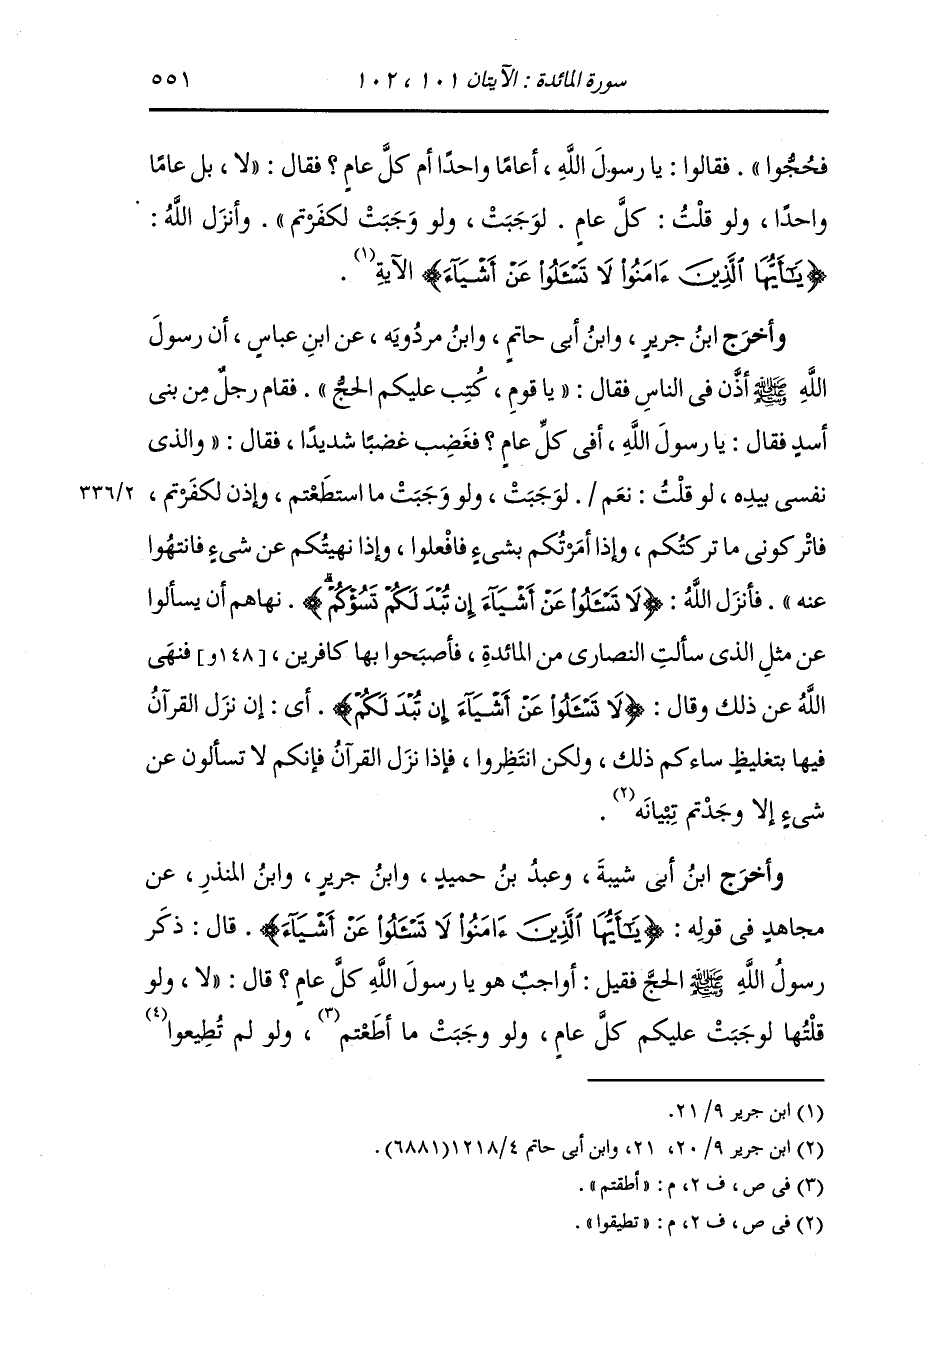 سورة المائدة : الآيتان ١٠١ ، ١٠٢ ٥٥١
فحُجُّوا » . فقالوا : يا رسولَ اللَّهِ ، أعامًا واحدًا أم كلَّ عامٍ ؟ فقال : «لا ، بل عامًا
واحدًا ، ولو قلْتُ : كلَّ عامٍ . لوَجَبَتْ ، ولو وَجَبَتْ لكفَرْتم » . وأنزَل اللَّهُ :
﴿ يَٰٓأَيُّهَا ٱلَّذِينَ ءَامَنُوا۟ لَا تَسْـَٔلُوا۟ عَنْ أَشْيَآءَ ﴾ الآيةِ(١) .
وأخرَج ابنُ جريرٍ ، وابنُ أبى حاتمٍ ، وابنُ مردُويَه ، عن ابنِ عباسٍ ، أن رسولَ
اللَّهِ ﷺ أذَّن فى الناسِ فقال : « يا قومِ ، كُتِب عليكم الحجُّ » . فقام رجلٌ مِن بنى
أسدٍ فقال : يا رسولَ اللَّهِ ، أفى كلِّ عامٍ ؟ فغَضِب غضبًا شديدًا ، فقال : « والذى
نفسى بيدِه ، لو قلْتُ : نعَم /. لوَجَبَتْ ، ولو وَجَبَتْ ما استطَعْتم ، وإذن لكفَرْتم ، ٣٣٦/٢
فاتْركونى ما تركتُكم ، وإذا أمَرْتُكم بشىءٍ فافْعلوا ، وإذا نهيتُكم عن شىءٍ فانتهُوا
عنه » . فأنزَل اللَّهُ : ﴿ لَا تَسْـَٔلُوا۟ عَنْ أَشْيَآءَ إِن تُبْدَ لَكُمْ تَسُؤْكُمْ ﴾ . نهاهم أن يسألوا
عن مثلِ الذى سألتِ النصارى من المائدةِ ، فأصبَحوا بها كافرين ، [١٤٨و] فنهَى
اللَّهُ عن ذلك وقال : ﴿ لَا تَسْـَٔلُوا۟ عَنْ أَشْيَآءَ إِن تُبْدَ لَكُمْ ﴾ . أى : إن نزَل القرآنُ
فيها بتغليظٍ ساءكم ذلك ، ولكن انتَظِروا ، فإذا نزَل القرآنُ فإنكم لا تسألون عن
شىءٍ إلا وجَدْتم تِبْيانَه(٢) .
وأخرَج ابنُ أبى شيبةَ ، وعبدُ بنُ حميدٍ ، وابنُ جريرٍ ، وابنُ المنذرِ ، عن
مجاهدٍ فى قولِه : ﴿ يَٰٓأَيُّهَا ٱلَّذِينَ ءَامَنُوا۟ لَا تَسْـَٔلُوا۟ عَنْ أَشْيَآءَ ﴾ . قال : ذكَر
رسولُ اللَّهِ ﷺ الحجَّ فقيل : أواجبٌ هو يا رسولَ اللَّهِ كلَّ عامٍ ؟ قال : «لا ، ولو
قلْتُها لوجَبَتْ عليكم كلَّ عامٍ ، ولو وجَبَتْ ما أطَعْتم(٣) ، ولو لم تُطِيعوا(٤)
(١) ابن جرير ٩/ ٢١.
(٢) ابن جرير ٩/ ٢٠، ٢١، وابن أبى حاتم ١٢١٨/٤(٦٨٨١).
(٣) فى ص، ف ٢، م : «أطقتم» .
(٢) فى ص، ف ٢، م : «تطيقوا» .